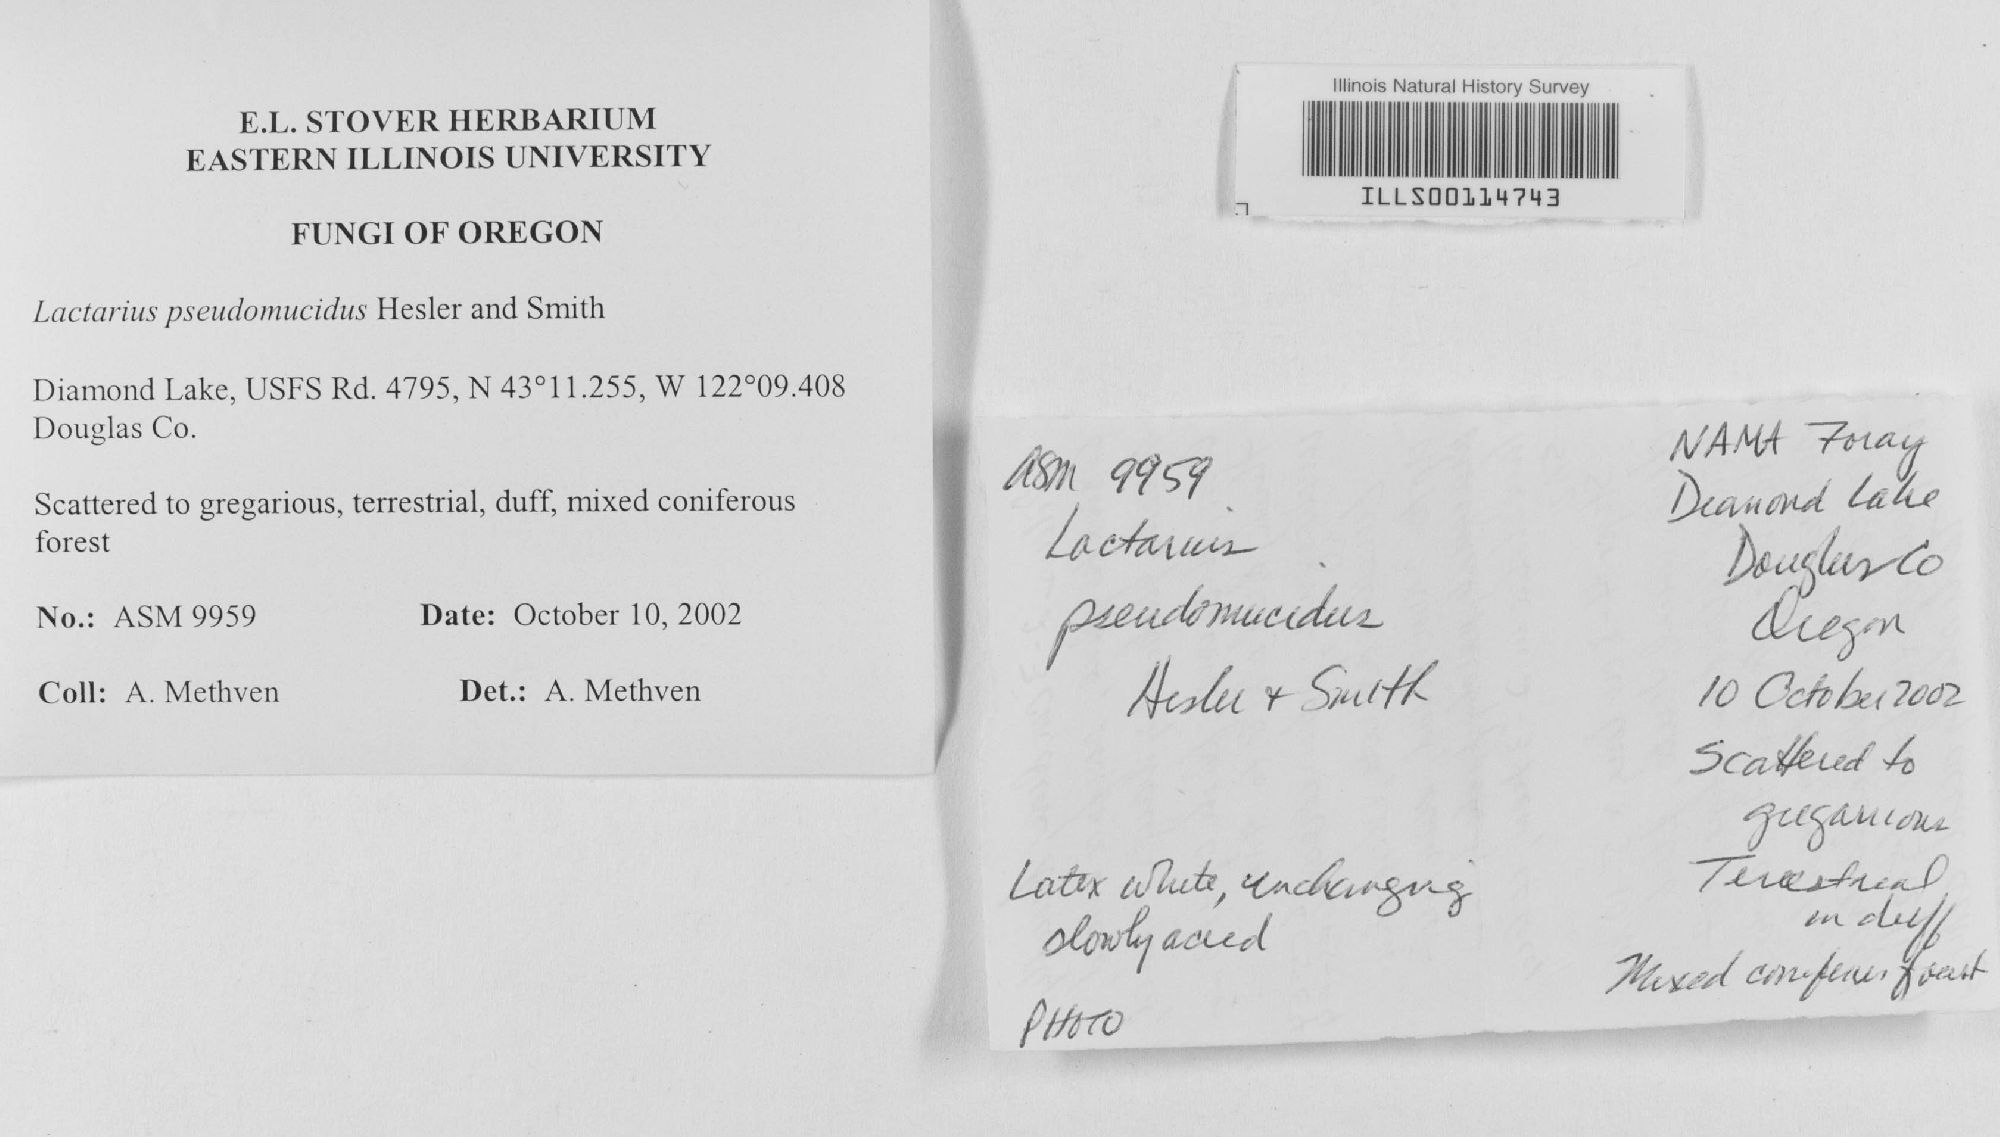 E.L. STOVER HERBARIUM
EASTERN ILLINOIS UNIVERSITY
FUNGI OF OREGON
Lactarius pseudomucidus Hesler and Smith
Diamond Lake, USFS Rd. 4795, N 43°11.255, W 122°09.408
Douglas Co.
Scattered to gregarious, terrestrial, duff, mixed coniferous
forest
No.: ASM 9959 Date: October 10, 2002
Coll: A. Methven Det.: A. Methven
Illinois Natural History Survey
ILLS00114743
ASM 9959
Lactarius
pseudomucidus
Hesler + Smith
Latex white, unchanging
slowly acrid
PHOTO
NAMA Foray
Diamond Lake
Douglas Co
Oregon
10 October 2002
Scattered to
gregarious
Terrestrial
in duff
Mixed conifer forest